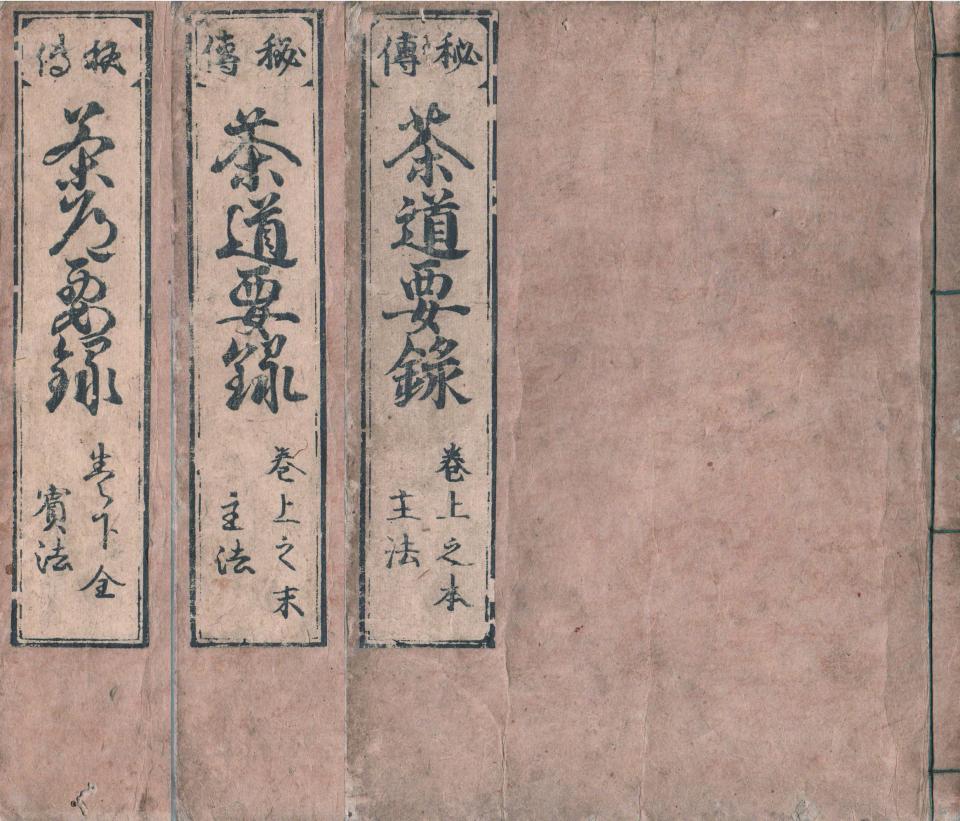 秘傳
茶道要錄
卷上之本
主法
秘傳
茶道要錄
巻上之末
主法
秘傳
茶道要録
巻之下全
賓法